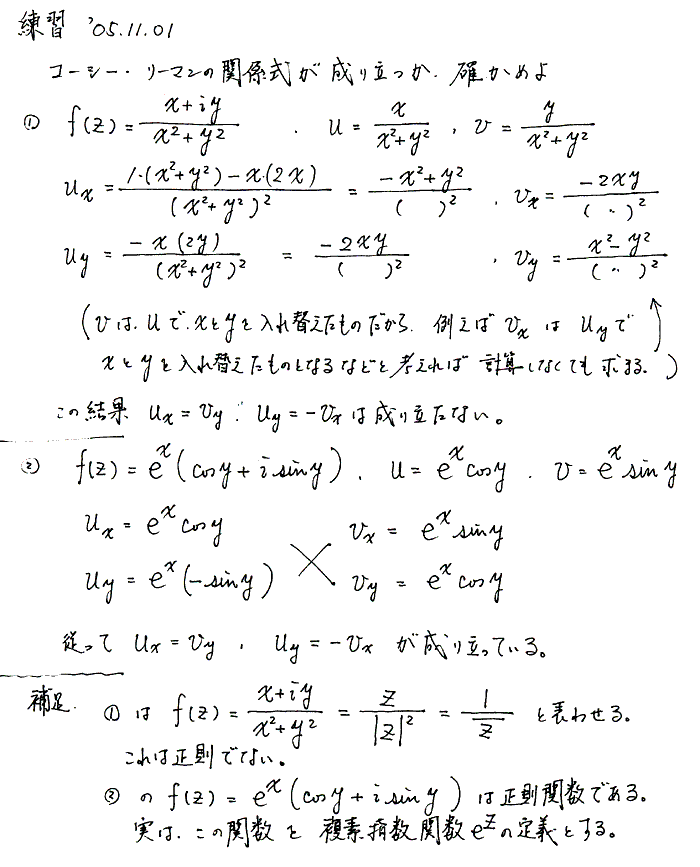 練習 '05.11.01
コーシー・リーマンの関係式が成り立つか、確かめよ
① f(z) = (x+iy)/(x²+y²) , u = x/(x²+y²) , v = y/(x²+y²)
u_x = (1·(x²+y²) − x·(2x))/(x²+y²)² = (−x²+y²)/( )² , v_x = −2xy/(〃)²
u_y = −x(2y)/(x²+y²)² = −2xy/( )² , v_y = (x²−y²)/(〃)²
(vは、uで、xとyを入れ替えたものだから、例えば v_x は u_y で
xとyを入れ替えたものとなるなどと考えれば計算しなくても求まる。)
この結果 u_x = v_y , u_y = −v_x は成り立たない。
② f(z) = e^x(cos y + i sin y) , u = e^x cos y , v = e^x sin y
u_x = e^x cos y v_x = e^x sin y
u_y = e^x(−sin y) v_y = e^x cos y
従って u_x = v_y , u_y = −v_x が成り立っている。
補足. ① は f(z) = (x+iy)/(x²+y²) = z/|z|² = 1/z̅ と表わせる。
これは正則でない。
② の f(z) = e^x(cos y + i sin y) は正則関数である。
実は、この関数を複素指数関数 e^z の定義とする。